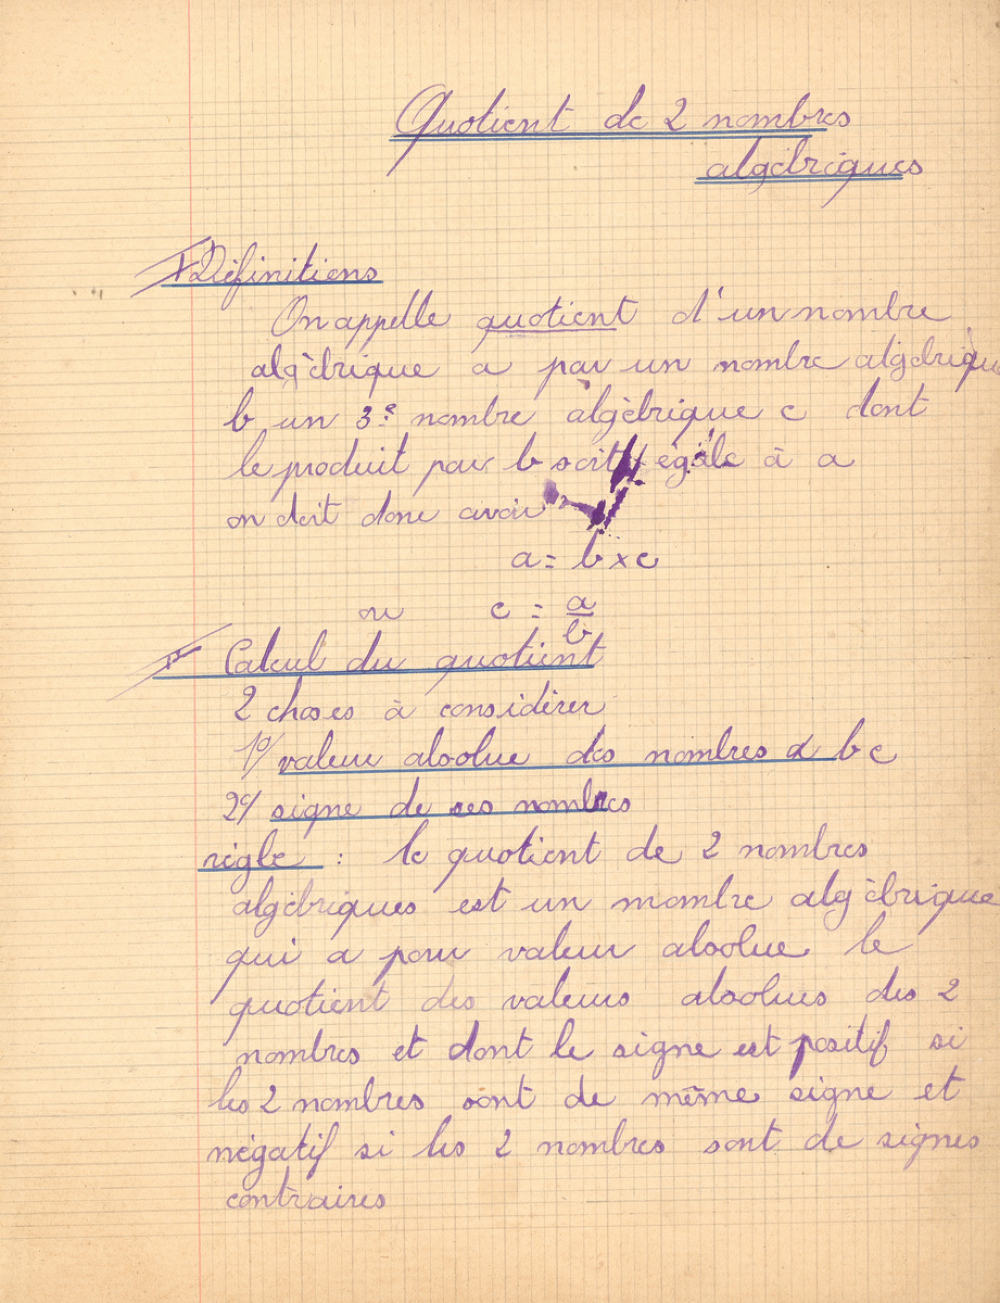 Quotient de 2 nombres
algébriques
I Définitions
On appelle quotient d'un nombre
algèbrique a par un nombre algèbrique
b un 3e nombre algèbrique c dont
le produit par b soit égale à a
on doit donc avoir
a = b x c
ou c = a/b
Calcul du quotient
2 choses à considérer
1º/ valeur absolue des nombres a b c
2º/ signe de ces nombres
règle : le quotient de 2 nombres
algèbriques est un nombre algèbrique
qui a pour valeur absolue le
quotient des valeurs absolues des 2
nombres et dont le signe est positif si
les 2 nombres sont de même signe et
négatif si les 2 nombres sont de signes
contraires